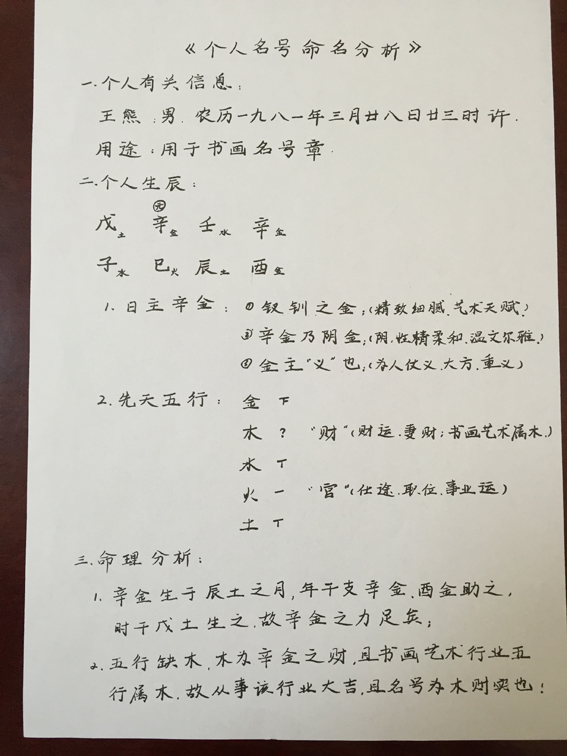 《个人名号命名分析》
一.个人有关信息:
王熊:男.农历一九八一年三月廿八日廿三时许.
用途:用于书画名号章.
二.个人生辰:
元
戊土 辛金 壬水 辛金
子水 巳火 辰土 酉金
1.日主辛金: ①钗钏之金:(精致细腻.艺术天赋)
②辛金乃阴金:(阴.性精柔和.温文尔雅.)
③金主"义"也:(为人仗义.大方.重义)
2.先天五行: 金 下
木 ? "财"(财运.妻财;书画艺术属木.)
水 丅
火 一 "官"(仕途.职位.事业运)
土 丅
三.命理分析:
1.辛金生于辰土之月,年干支辛金.酉金助之,
时干戊土生之.故辛金之力足矣;
2.五行缺木.木为辛金之财,且书画艺术行业五
行属木.故从事该行业大吉,且名号为木财实也!